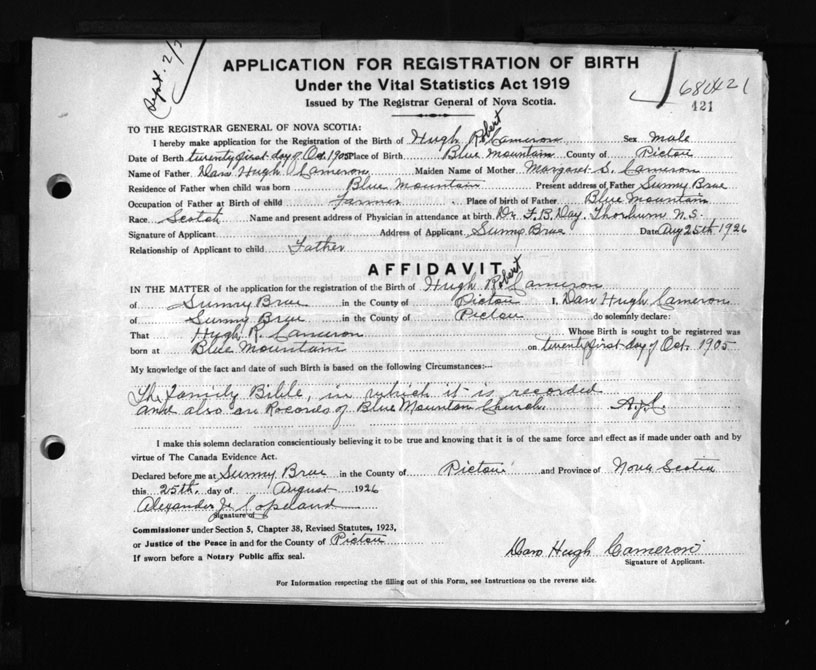 Sept. 2/2
APPLICATION FOR REGISTRATION OF BIRTH
Under the Vital Statistics Act 1919
Issued by The Registrar General of Nova Scotia.
680421
421
TO THE REGISTRAR GENERAL OF NOVA SCOTIA:
I hereby make application for the Registration of the Birth of Hugh Robert Cameron Sex Male
Date of Birth twenty first day of Oct. 1905 Place of Birth Blue Mountain County of Pictou
Name of Father Dan Hugh Cameron Maiden Name of Mother Margaret S. Cameron
Residence of Father when child was born Blue Mountain Present address of Father Sunny Brae
Occupation of Father at Birth of child Farmer Place of birth of Father Blue Mountain
Race Scotch Name and present address of Physician in attendance at birth Dr. F. B. Day, Thorburn N.S.
Signature of Applicant Address of Applicant Sunny Brae Date Aug 25th 1926
Relationship of Applicant to child Father
AFFIDAVIT
IN THE MATTER of the application for the registration of the Birth of Hugh Robert Cameron
of Sunny Brae in the County of Pictou I, Dan Hugh Cameron
of Sunny Brae in the County of Pictou do solemnly declare:
That Hugh R. Cameron Whose Birth is sought to be registered was
born at Blue Mountain on twenty first day of Oct. 1905
My knowledge of the fact and date of such Birth is based on the following Circumstances:
The family Bible, in which it is recorded
and also on Records of Blue Mountain Church. A.J.C.
I make this solemn declaration conscientiously believing it to be true and knowing that it is of the same force and effect as if made under oath and by
virtue of The Canada Evidence Act.
Declared before me at Sunny Brae in the County of Pictou and Province of Nova Scotia
this 25th. day of August 1926
Alexander J. Copeland
Signature of
Commissioner under Section 5, Chapter 38, Revised Statutes, 1923,
or Justice of the Peace in and for the County of Pictou
If sworn before a Notary Public affix seal.
Dan Hugh Cameron
Signature of Applicant.
For Information respecting the filling out of this Form, see Instructions on the reverse side.